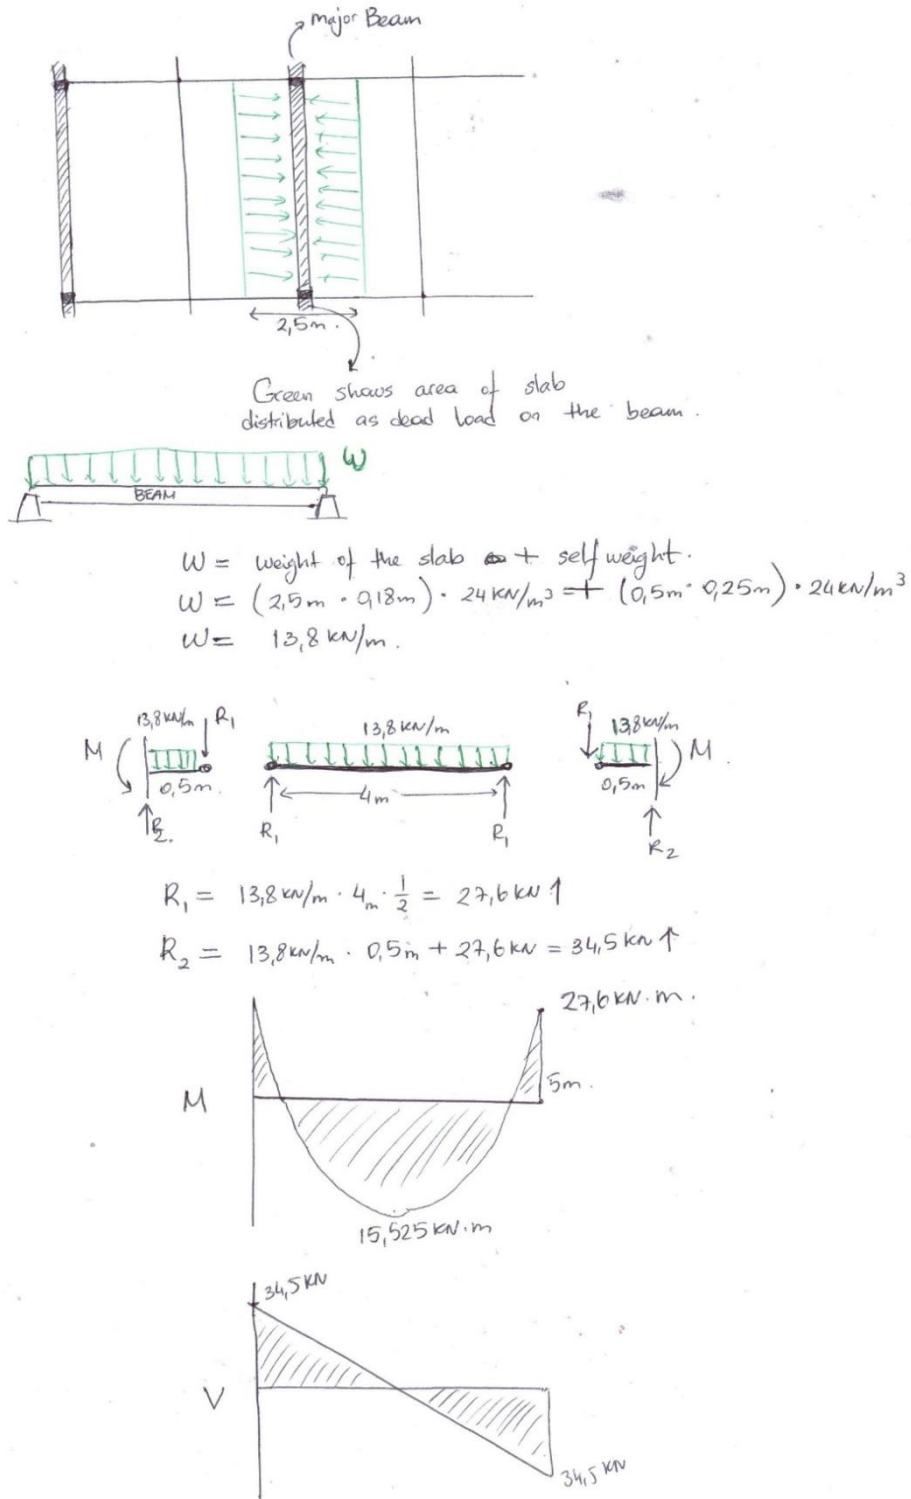 major Beam
2,5m.
Green shows area of slab
distributed as dead load on the beam.
W
BEAM
W = weight of the slab + self weight.
W = (2,5m · 0,18m) · 24 KN/m³ + (0,5m · 0,25m) · 24 KN/m³
W = 13,8 KN/m.
13,8 KN/m R₁ 13,8 KN/m R₁ 13,8 KN/m
M M
0,5m 4m 0,5m
R₂. R₁ R₁ R₂
R₁ = 13,8 KN/m · 4m · 1/2 = 27,6 KN ↑
R₂ = 13,8 KN/m · 0,5m + 27,6 KN = 34,5 KN ↑
27,6 KN·m.
5m.
M
15,525 KN·m
34,5 KN
V
34,5 KN